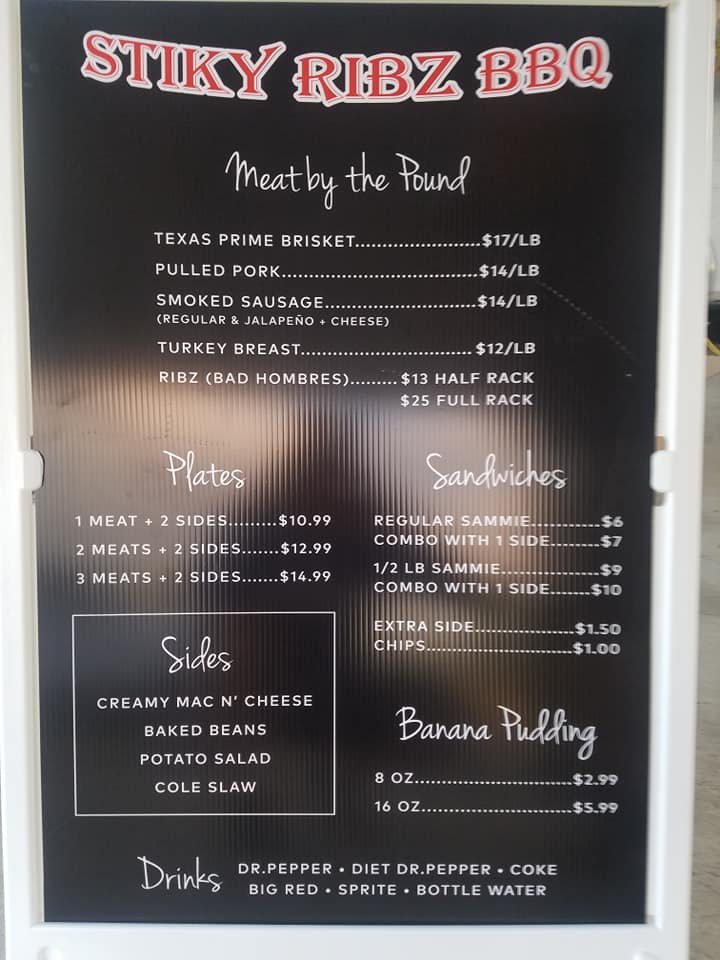 STIKY RIBZ BBQ
Meat by the Pound
TEXAS PRIME BRISKET.......................$17/LB
PULLED PORK....................................$14/LB
SMOKED SAUSAGE............................$14/LB
(REGULAR & JALAPEÑO + CHEESE)
TURKEY BREAST............................... $12/LB
RIBZ (BAD HOMBRES)......... $13 HALF RACK
$25 FULL RACK
Plates
1 MEAT + 2 SIDES.........$10.99
2 MEATS + 2 SIDES.......$12.99
3 MEATS + 2 SIDES.......$14.99
Sides
CREAMY MAC N' CHEESE
BAKED BEANS
POTATO SALAD
COLE SLAW
Sandwiches
REGULAR SAMMIE............$6
COMBO WITH 1 SIDE........$7
1/2 LB SAMMIE.................$9
COMBO WITH 1 SIDE.......$10
EXTRA SIDE.................$1.50
CHIPS.........................$1.00
Banana Pudding
8 OZ...........................$2.99
16 OZ..........................$5.99
Drinks
DR.PEPPER • DIET DR.PEPPER • COKE
BIG RED • SPRITE • BOTTLE WATER